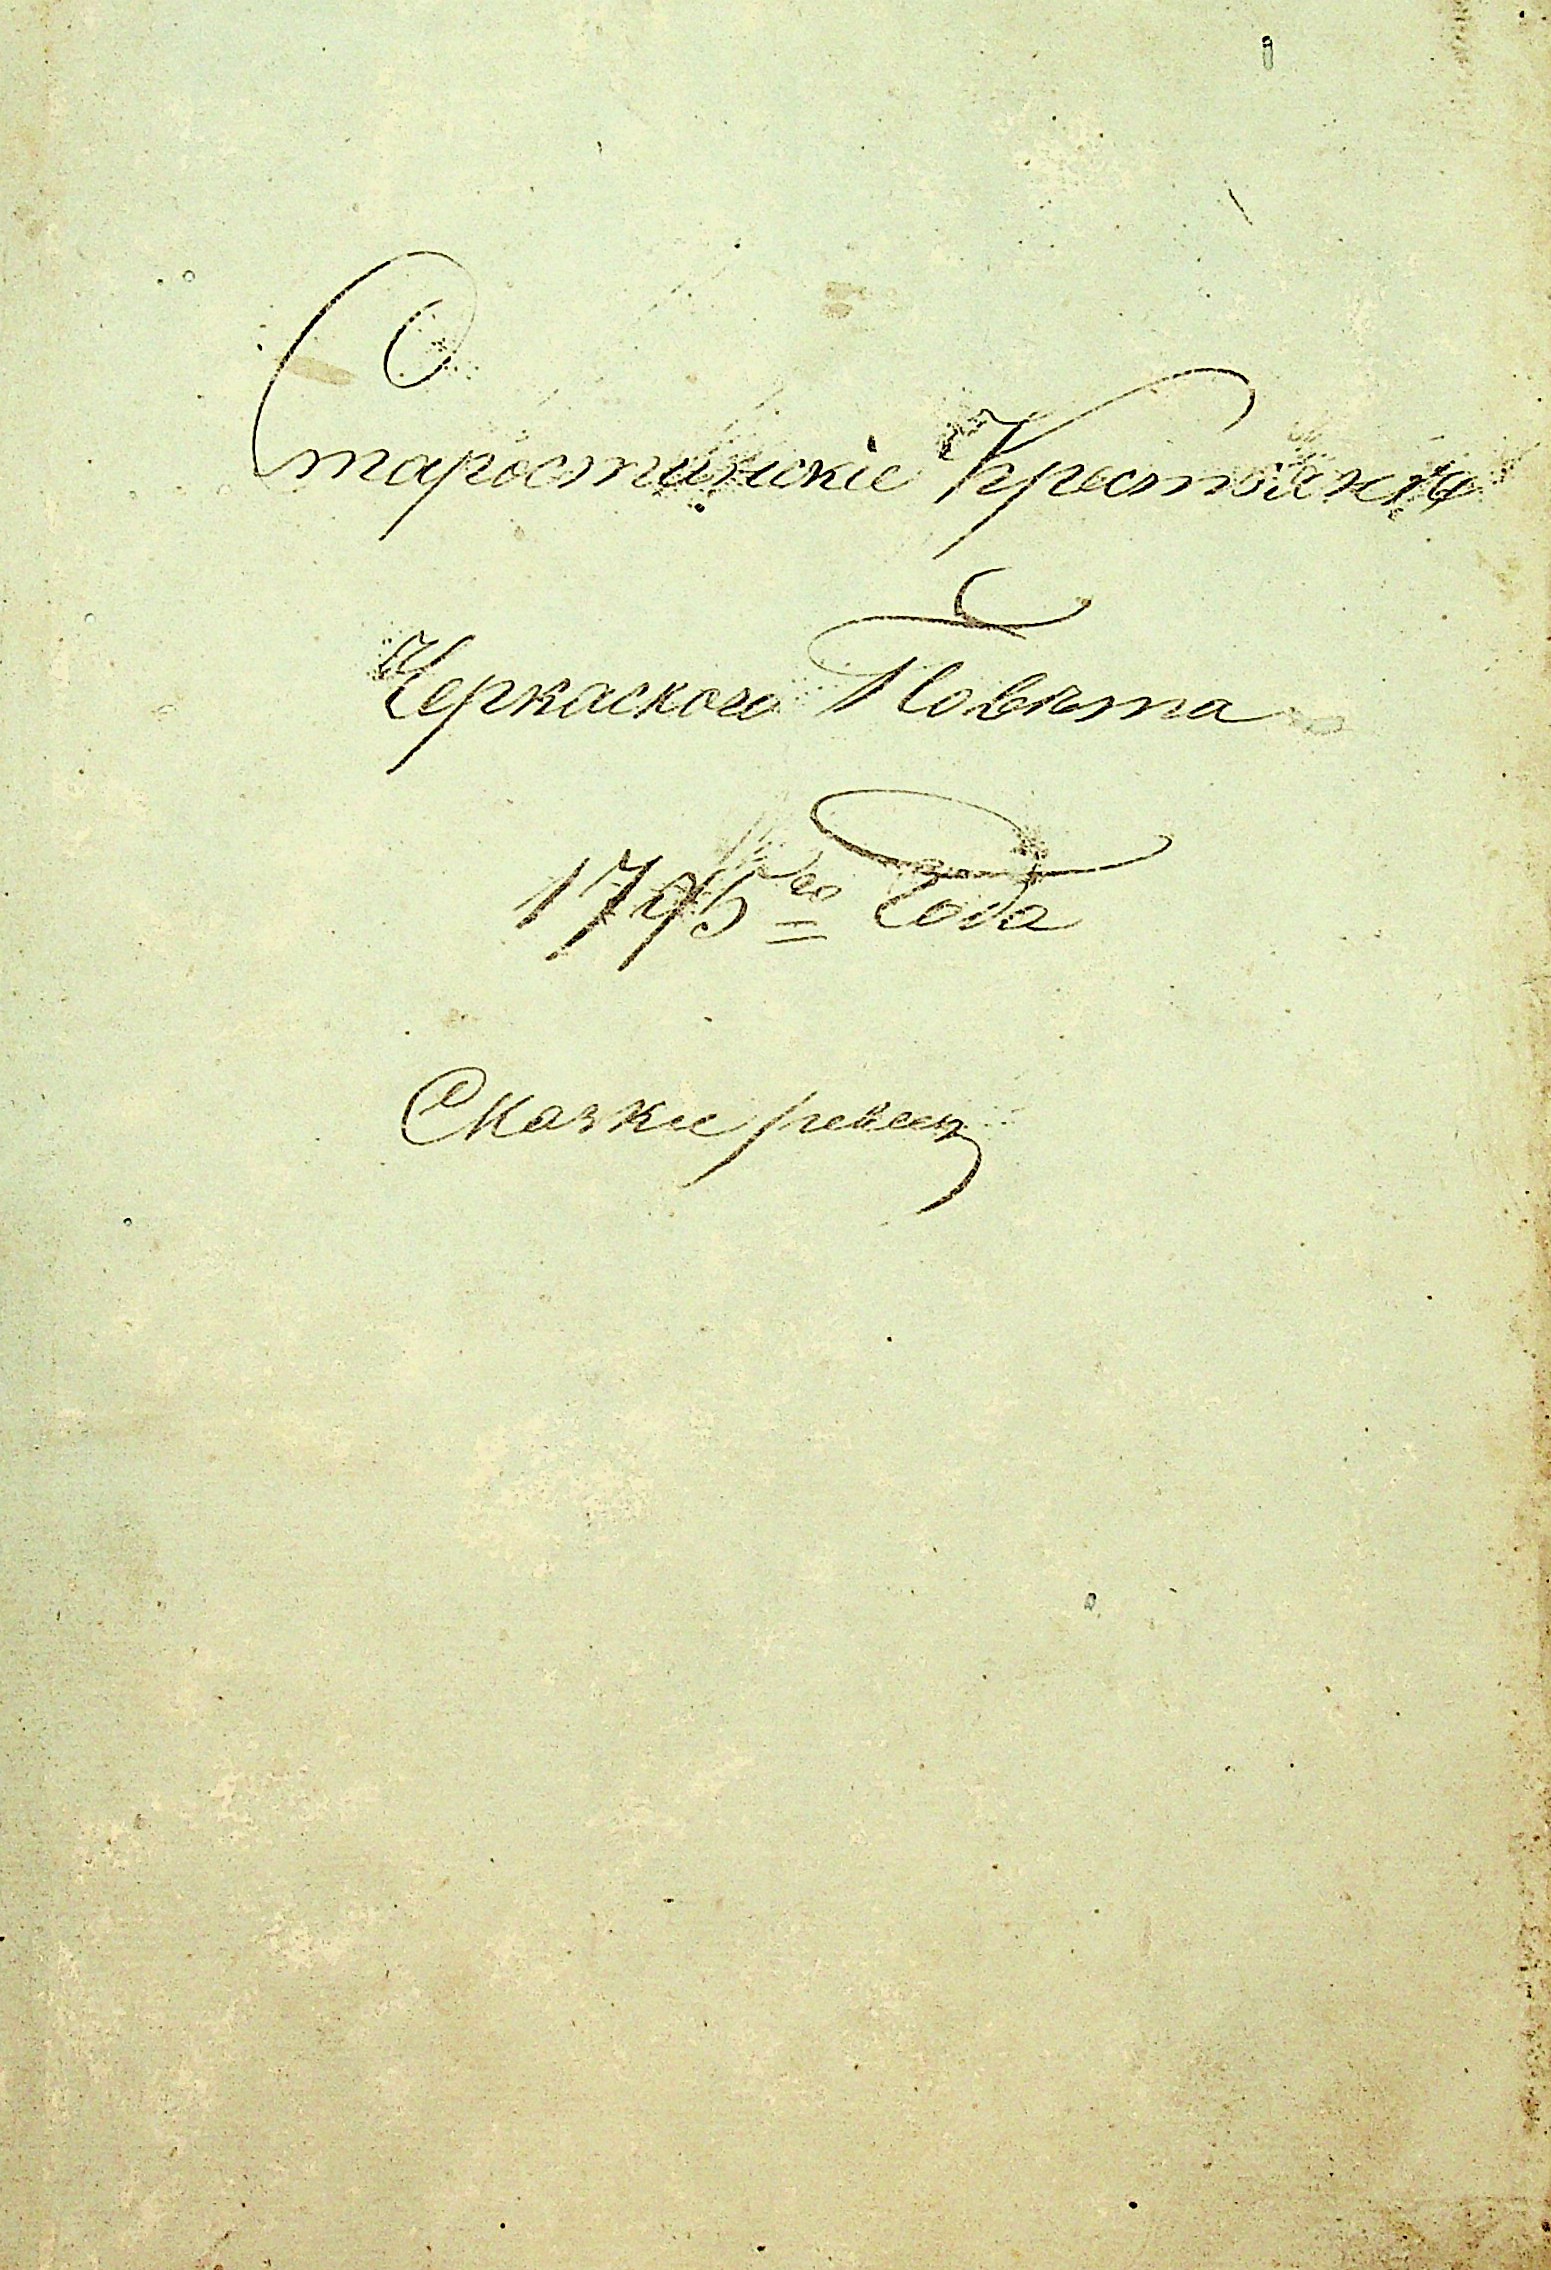 Старостинскіе Крестьяне
Черкаского Повѣта
1795го Года
Сказки ревиз